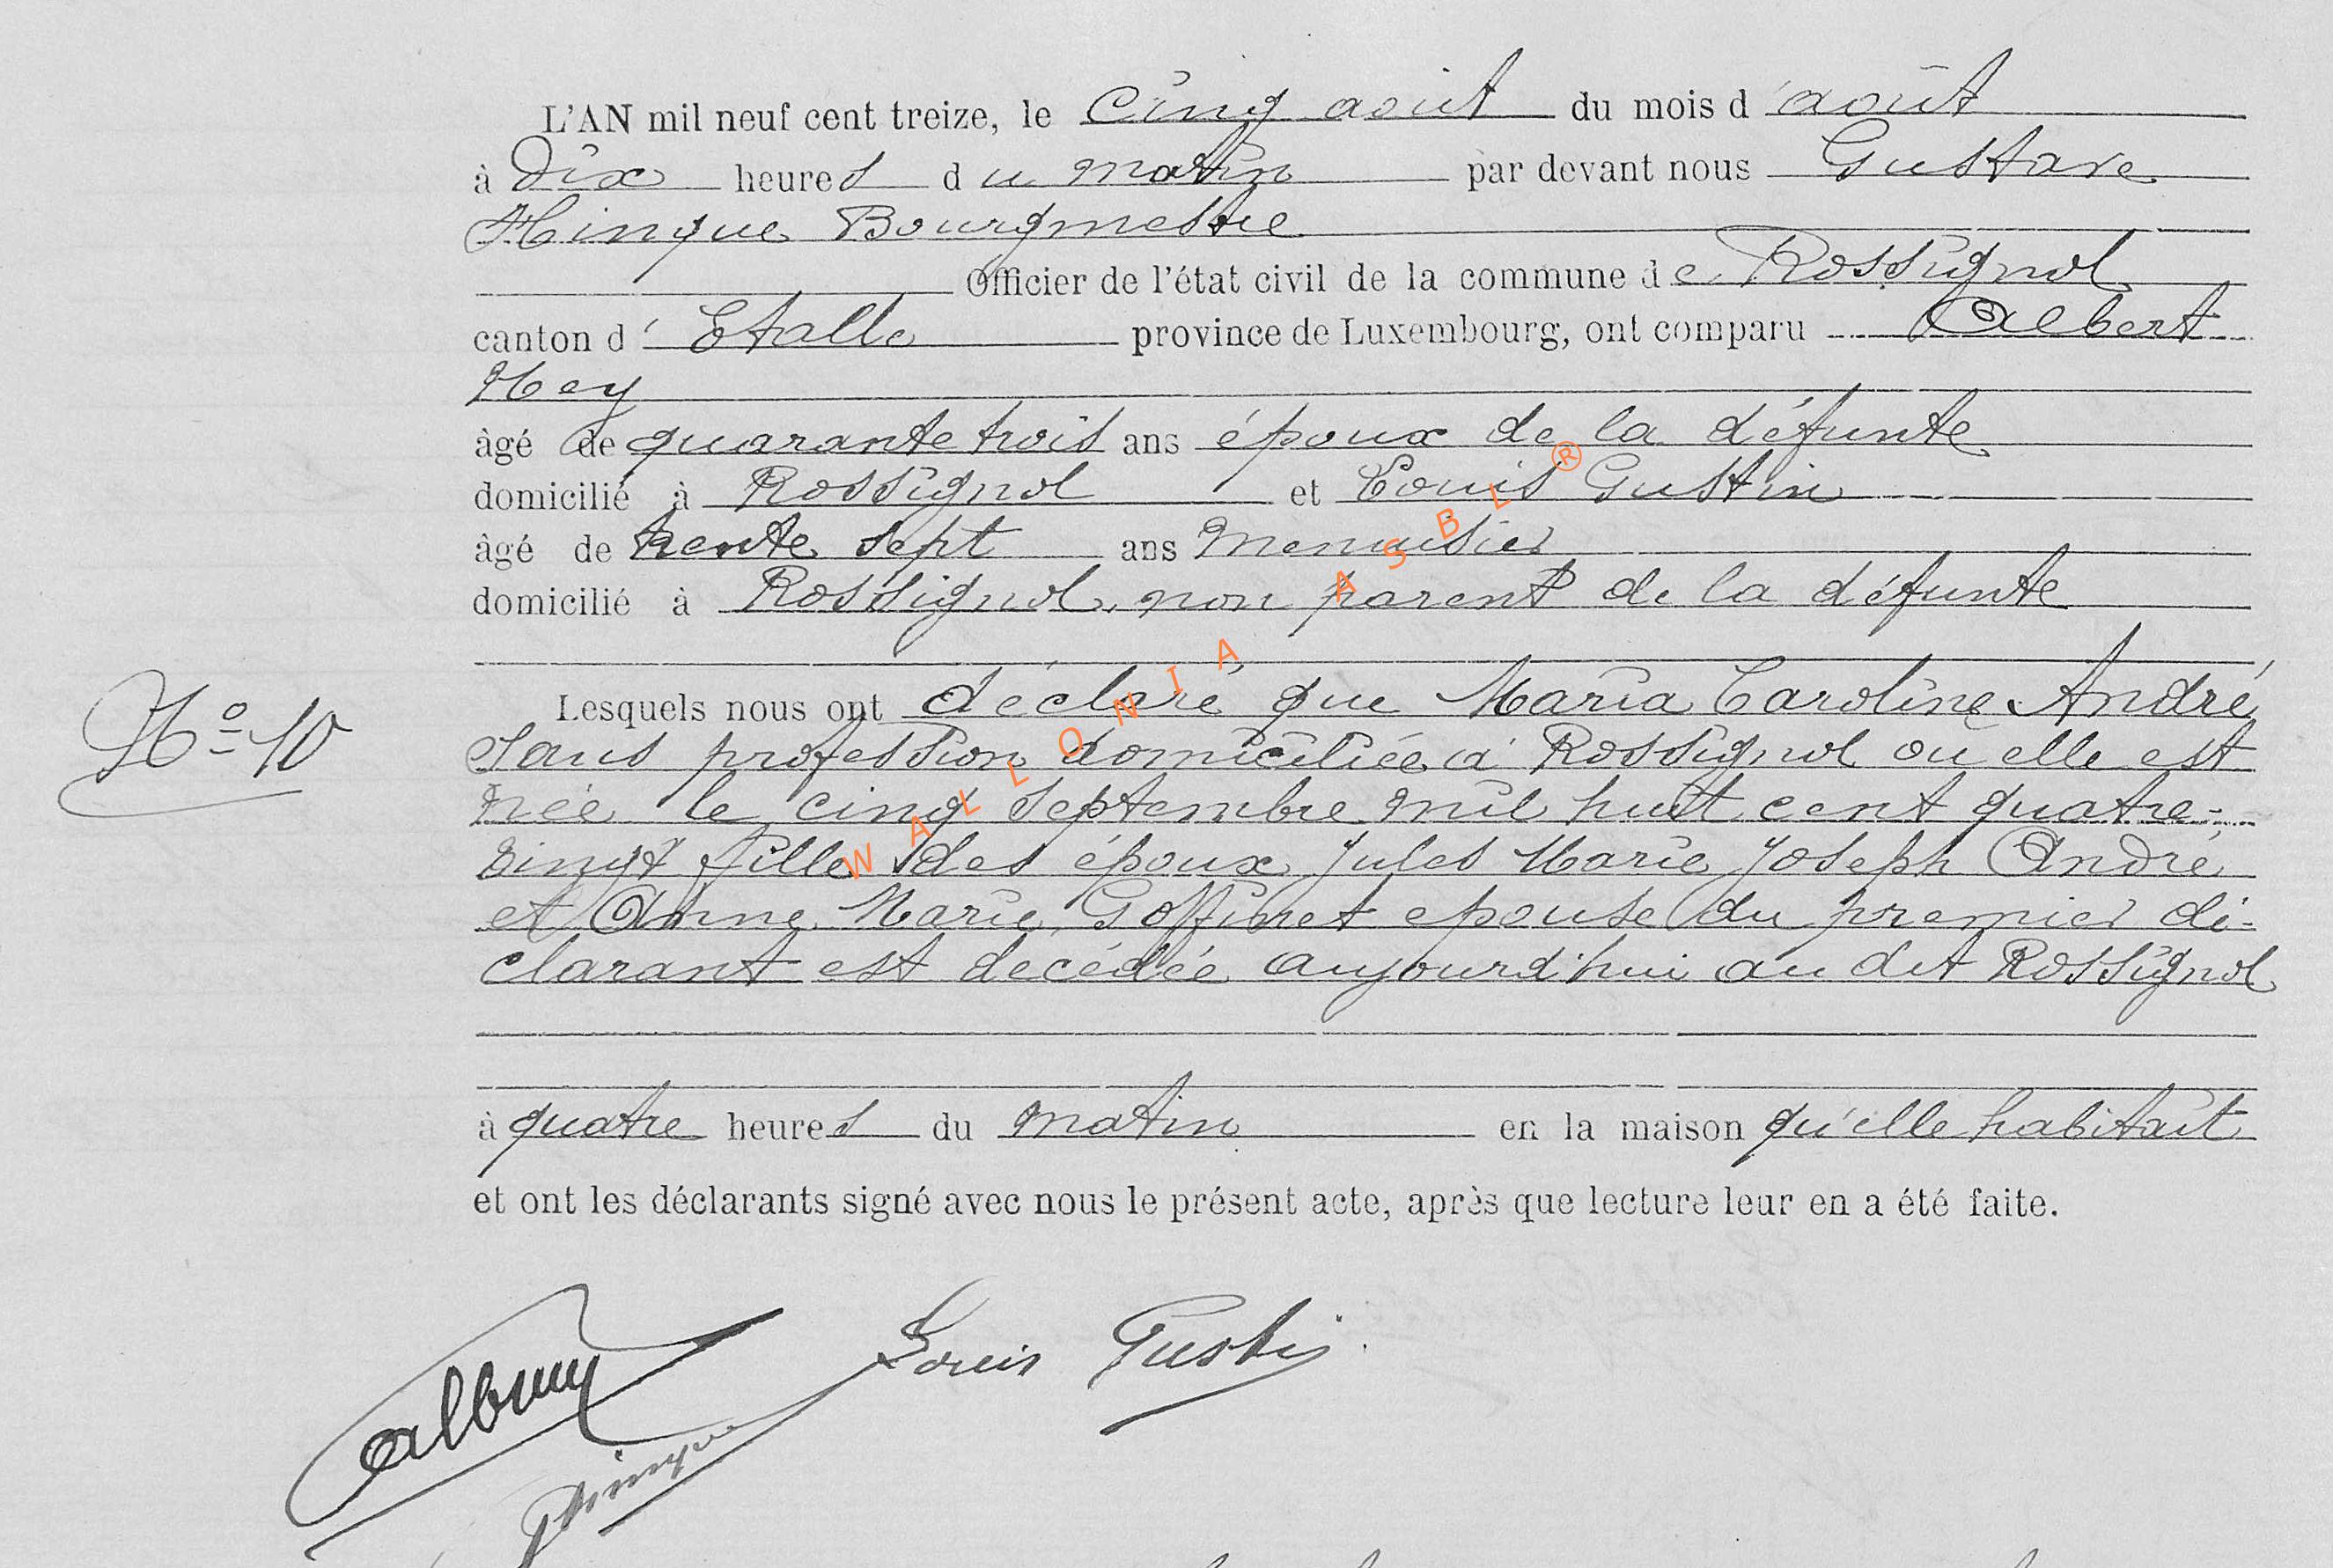 L'AN mil neuf cent treize, le cinq août du mois d'août
à dix heures du matin par devant nous Gustave
Hinque Bourgmestre
Officier de l'état civil de la commune de Rossignol
canton d'Etalle province de Luxembourg, ont comparu Albert
Hey
âgé de quarante trois ans époux de la défunte
domicilié à Rossignol et Louis Gustin
âgé de trente sept ans Menuisier
domicilié à Rossignol, non parent de la défunte
N° 10
Lesquels nous ont déclaré que Maria Caroline André
sans profession domiciliée à Rossignol où elle est
née le cinq septembre mil huit cent quatre-
vingt fille des époux Jules Marie Joseph André
et Anne Marie Goffinet épouse du premier dé-
clarant est décédée aujourd'hui au dit Rossignol
à quatre heures du matin en la maison qu'elle habitait
et ont les déclarants signé avec nous le présent acte, après que lecture leur en a été faite.
Louis Gustin
Hinque
WALLONIA ASBL ®